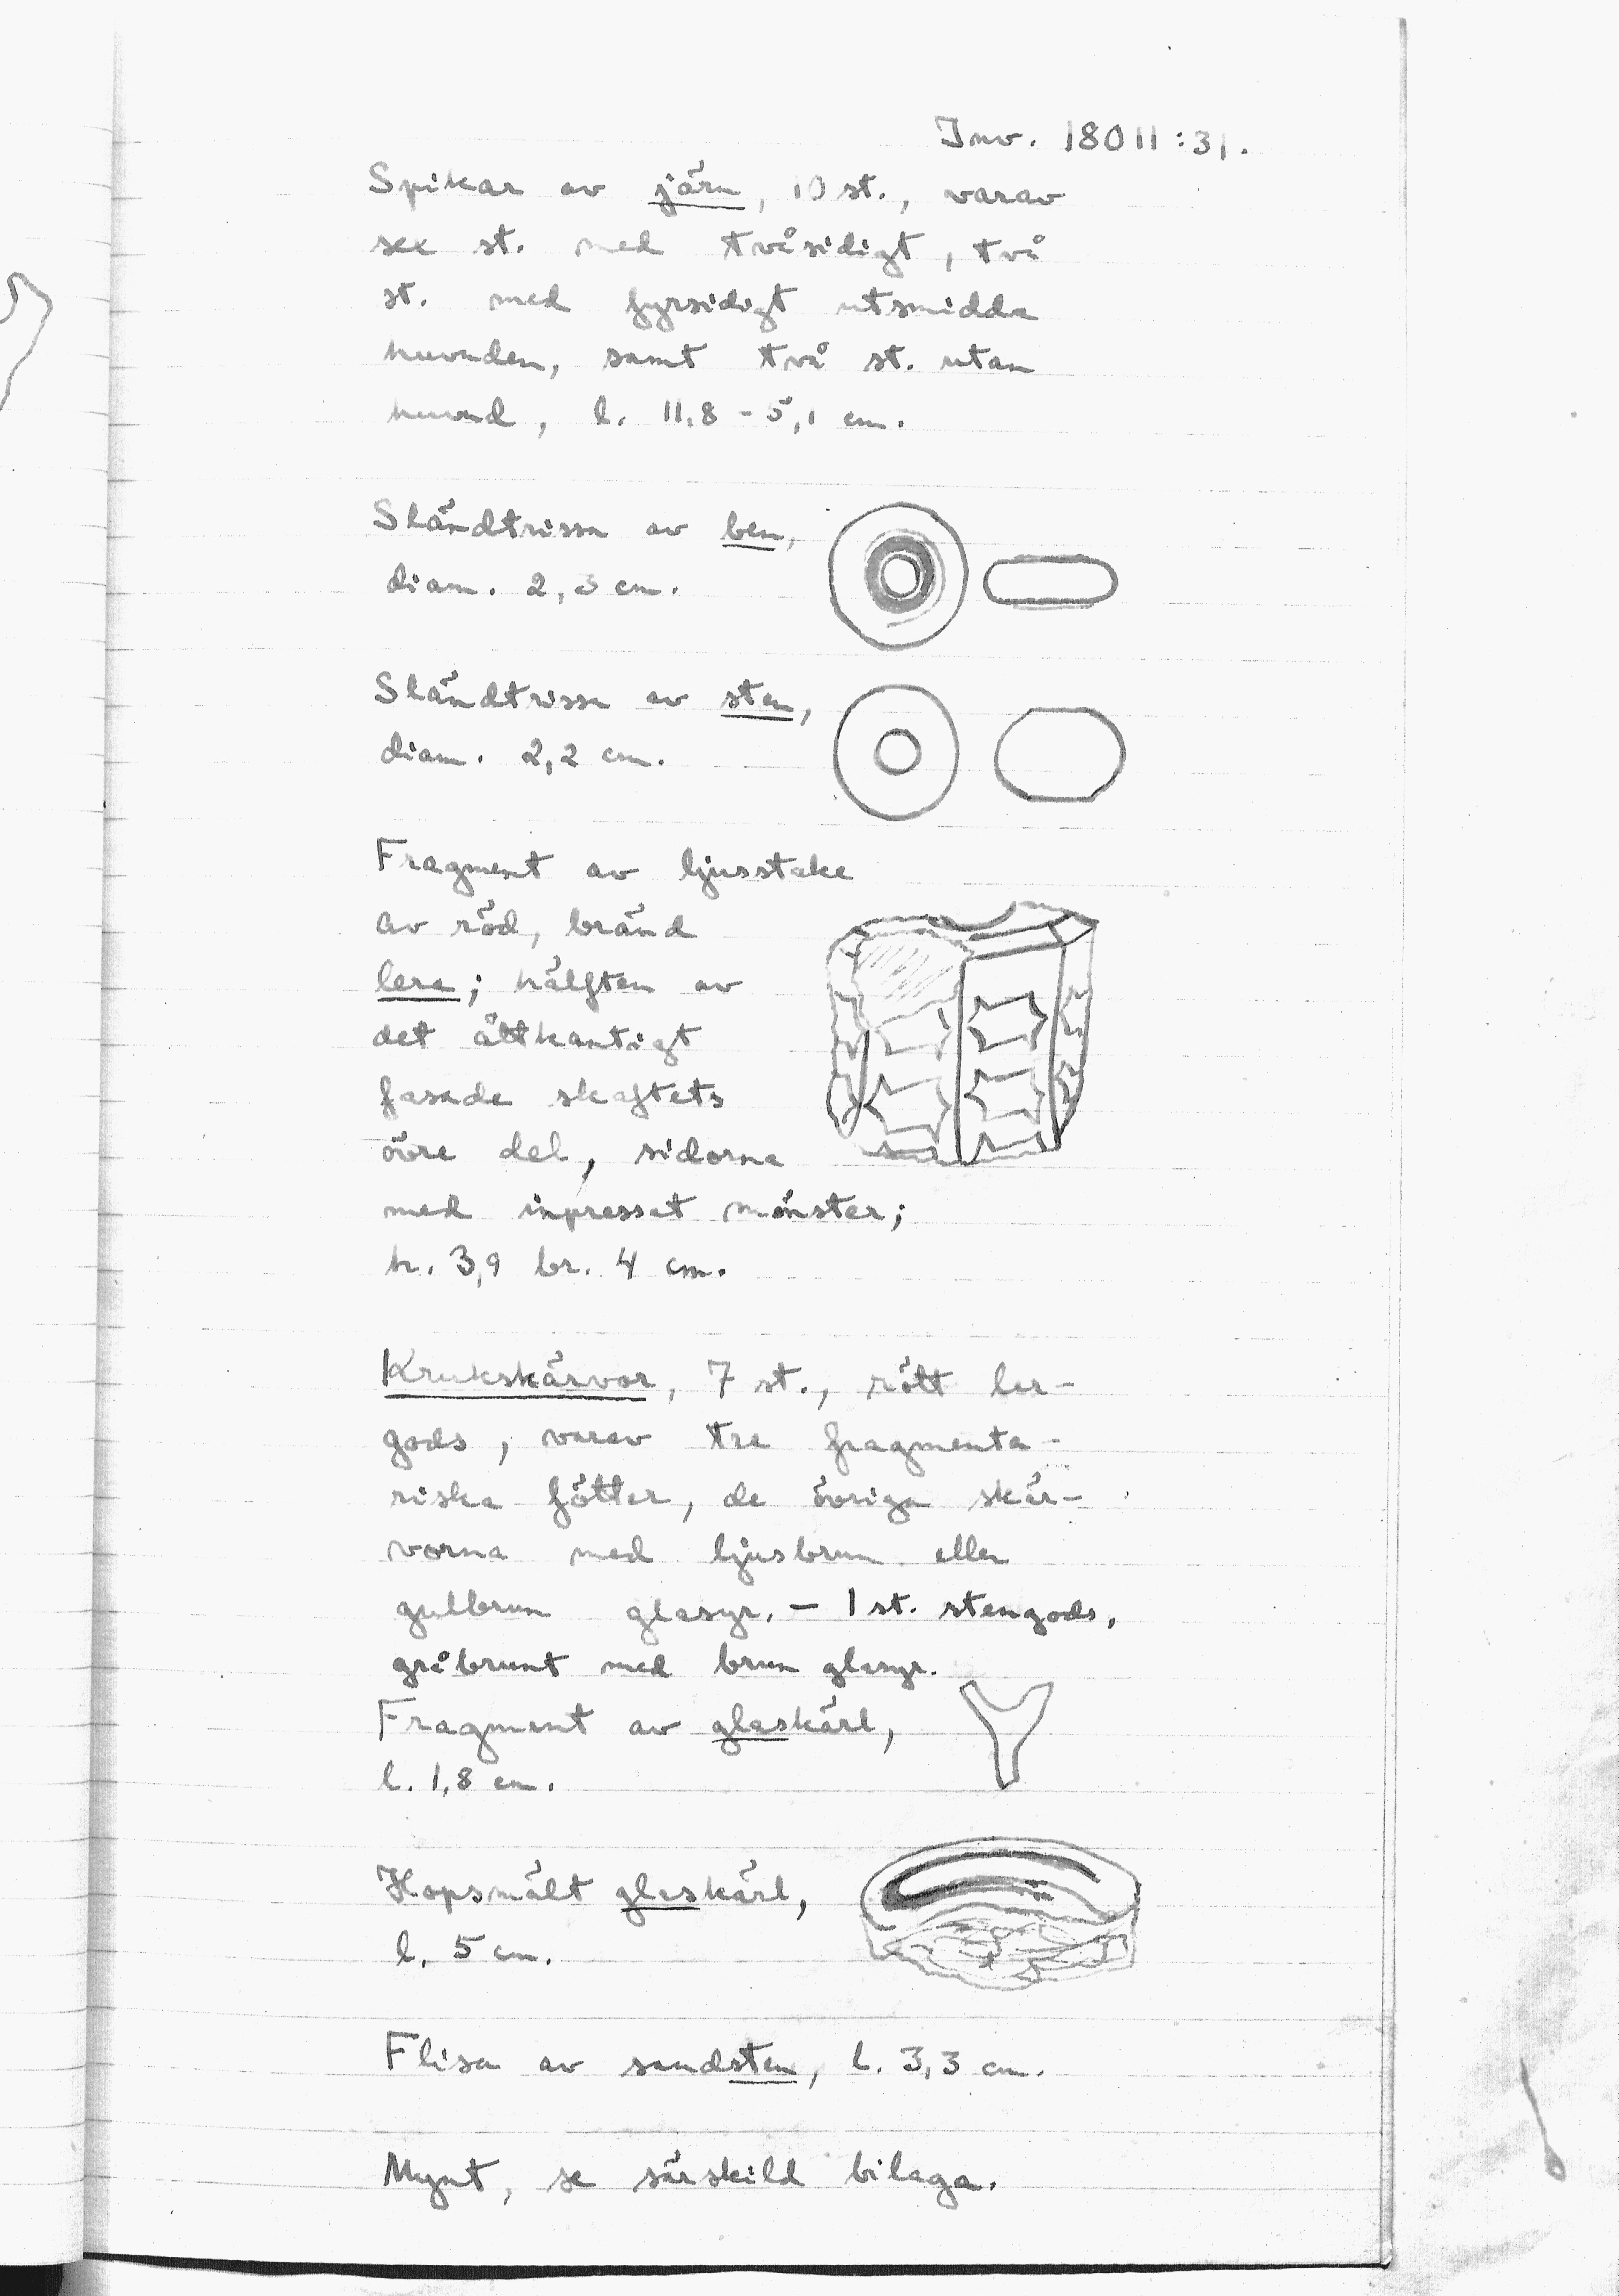 Inv. 18011:31.
Spikar av järn, 10 st., varav
sex st. med tvåsidigt, två
st. med fyrsidigt utsmidda
huvuden, samt två st. utan
huvud, l. 11,8 - 5,1 cm.
Sländtrissa av ben,
diam. 2,3 cm.
Sländtrissa av sten,
diam. 2,2 cm.
Fragment av ljusstake
av röd, bränd
lera; hälften av
det åttkantigt
fasade skaftets
övre del, sidorna
med inpressat mönster;
h. 3,9 br. 4 cm.
Krukskärvor, 7 st., rött ler-
gods, varav tre fragmenta-
riska fötter, de övriga skär-
vorna med ljusbrun eller
gulbrun glasyr. - 1 st. stengods,
gråbrunt med brun glasyr.
Fragment av glaskärl,
l. 1,8 cm.
Hopsmält glaskärl,
l. 5 cm.
Flisa av sandsten, l. 3,3 cm.
Mynt, se särskild bilaga.